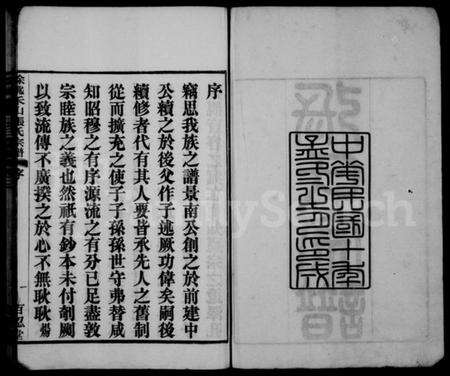 序
竊思我族之譜景南公創之於前建中
公續之於後父作子述厥功偉矣嗣後
續修者代有其人要皆承先人之舊制
從而擴充之使子子孫孫世守弗替咸
知昭穆之有序源流之有分已足盡敦
宗睦族之義也然祇有鈔本未付剞劂
以致流傳不廣揆之於心不無耿耿
序
中華民國十年
FamilySearch